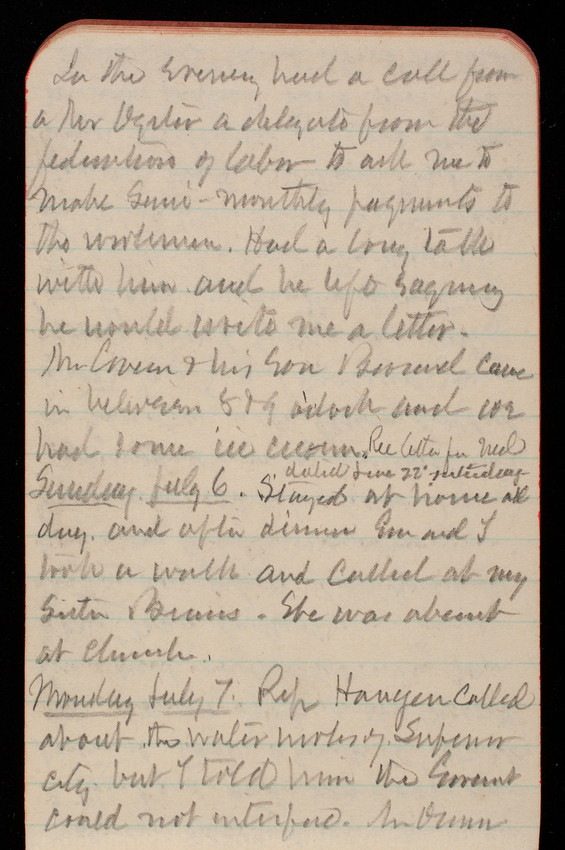 In the evening had a call from
a Mr a delegate from the
federation of labor to ask me to
make semi-monthly payments to
the workmen. Had a long talk
with him and he left saying
he would write to me a letter.
Mr & his son came
in between 8 & 9 oclock and we
had some ice cream. Rec letter fm Ned
dated June 22d yesterday
Sunday July 6. Stayed at home all
day. and after dinner Em and I
took a walk and called at my
Sister . She was absent
at church.
Monday July 7. Rep Haugen called
about the water works of Superior
city but I told him the Govmnt
could not interfere. Mr